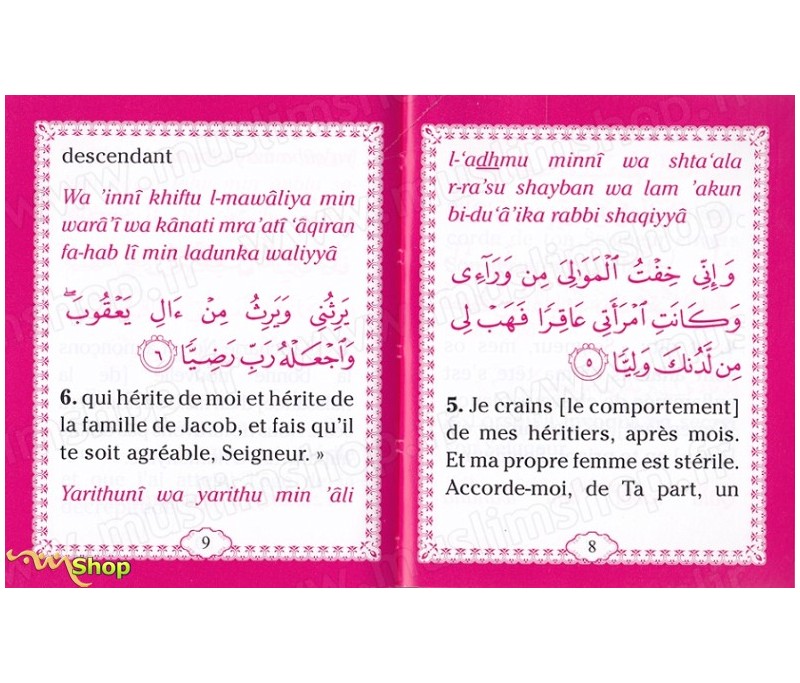 l-‘adhmu minnî wa shta‘ala
r-ra’su shayban wa lam ’akun
bi-du‘â’ika rabbi shaqiyyâ
وَإِنِّي خِفْتُ ٱلْمَوَٰلِىَ مِن وَرَآءِى
وَكَانَتِ ٱمْرَأَتِي عَاقِرًا فَهَبْ لِي
مِن لَّدُنكَ وَلِيًّا ٥
5. Je crains [le comportement]
de mes héritiers, après mois.
Et ma propre femme est stérile.
Accorde-moi, de Ta part, un
8
descendant
Wa ’innî khiftu l-mawâliya min
warâ’î wa kânati mra’atî ‘âqiran
fa-hab lî min ladunka waliyyâ
يَرِثُنِي وَيَرِثُ مِنْ ءَالِ يَعْقُوبَ ۖ
وَٱجْعَلْهُ رَبِّ رَضِيًّا ٦
6. qui hérite de moi et hérite de
la famille de Jacob, et fais qu’il
te soit agréable, Seigneur. »
Yarithunî wa yarithu min ’âli
9
Shop
www.muslimshop.fr